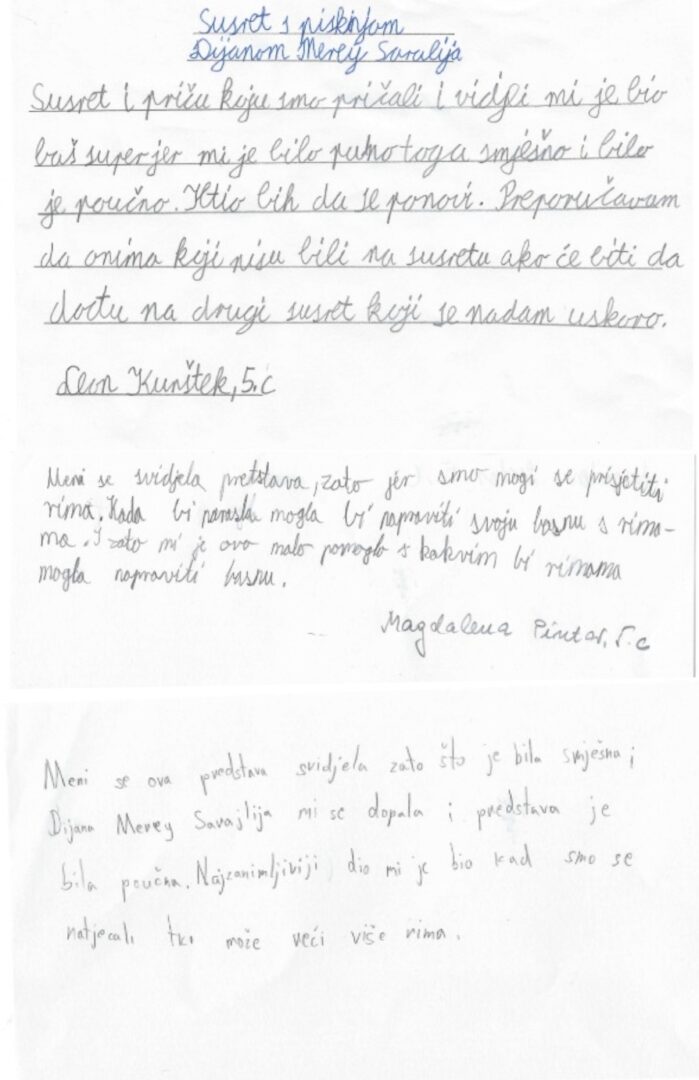 Susret s piskinjom
Dijanom Merey Saralija
Susret i priču koju smo pričali i vidjli mi je bio
baš super jer mi je bilo puno toga smješno i bilo
je poučno. Htio bih da se ponovi. Preporučavam
da onima koji nisu bili na susretu ako će biti da
dođu na drugi susret koji se nadam uskoro.
Leon Kunštek, 5.c
Meni se svidjela pretstava, zato jer smo mogi se prisjetiti
rima. Kada bi narasla mogla bi napraviti svoju basnu s rima-
ma. I zato mi je ovo malo pomoglo s kakvim bi rimama
mogla napraviti basnu.
Magdalena Pintar, 5.c
Meni se ova predstava svidjela zato što je bila smješna i
Dijana Merey Savajlija mi se dopala i predstava je
bila poučna. Najzanimljiviji dio mi je bio kad smo se
natjecali tko može reći više rima.